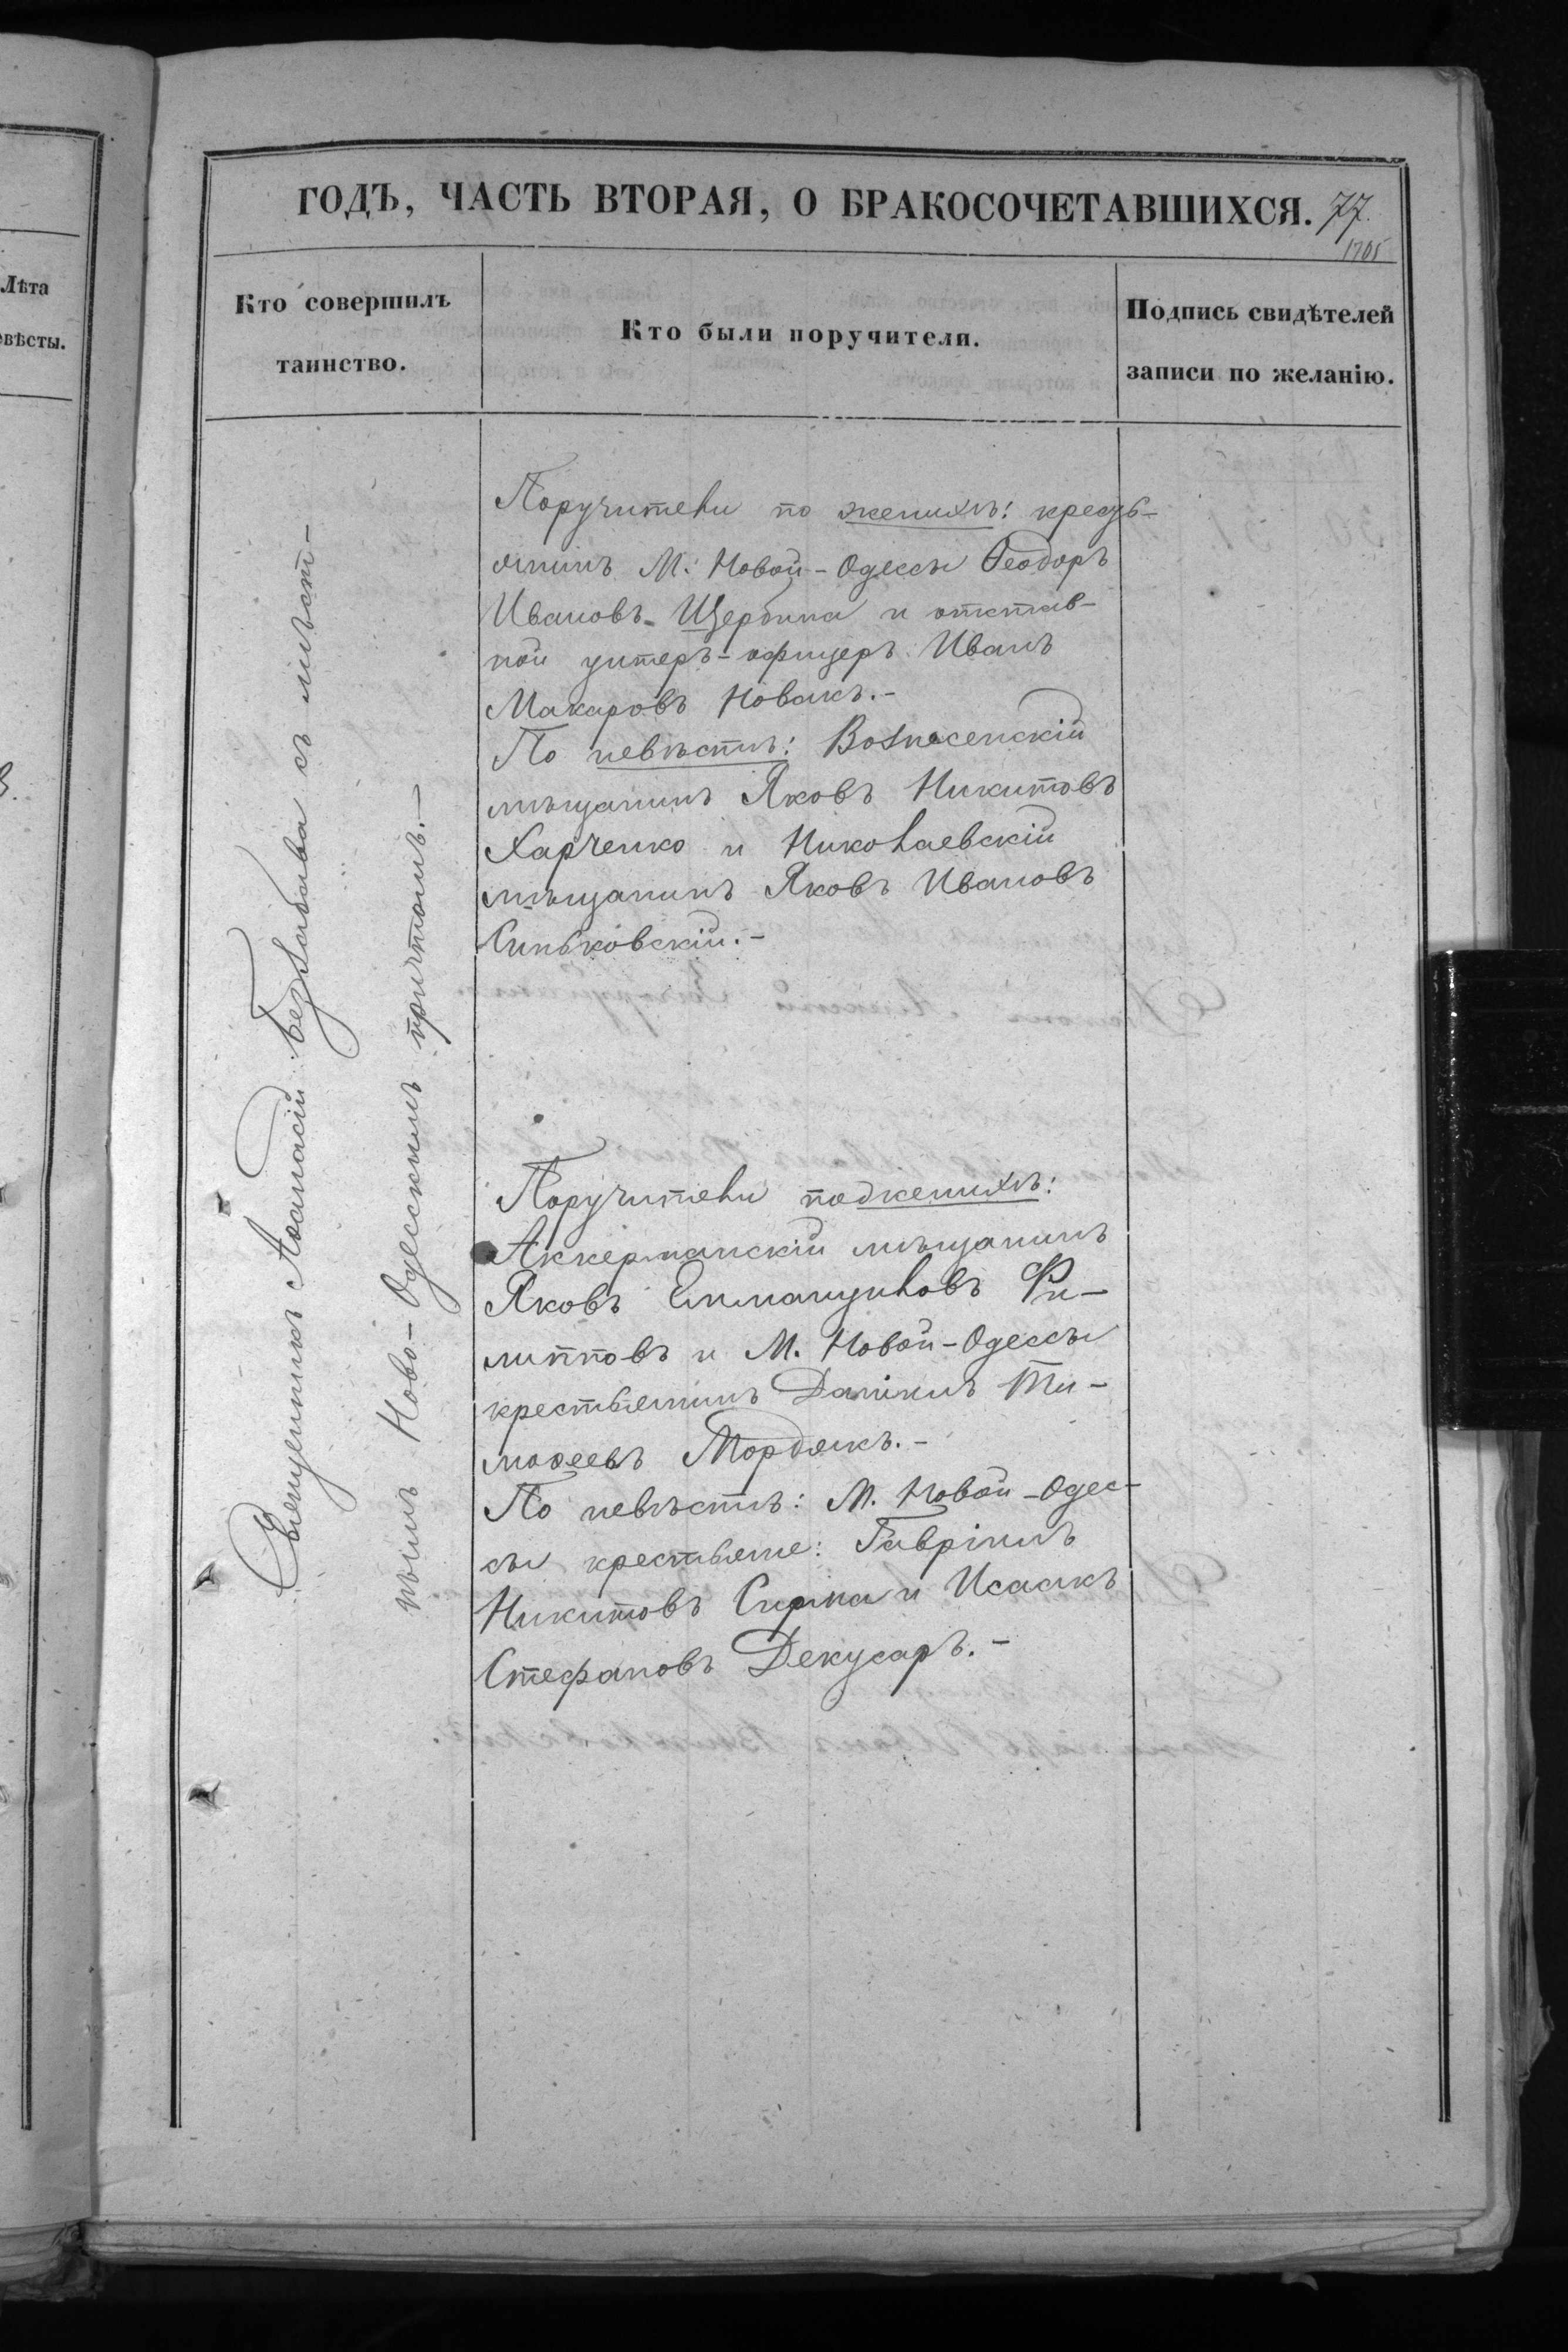 Лѣта
вѣсты.
ГОДЪ, ЧАСТЬ ВТОРАЯ, О БРАКОСОЧЕТАВШИХСЯ. 77.
1705
Кто совершилъ
таинство.
Кто были поручители.
Подпись свидѣтелей
записи по желанію.
Священникъ Аѳанасій Беззабава съ мѣст-
нымъ Ново-Одесскимъ причтомъ.-
Поручители по женихѣ: кресть-
янинъ М. Новой-Одессы Ѳеодоръ
Ивановъ Щербина и отстав-
ной унтеръ-офицеръ Иванъ
Макаровъ Новакъ.-
По невѣстѣ: Вознесенскій
мѣщанинъ Яковъ Никитовъ
Харченко и Николаевскій
мѣщанинъ Яковъ Ивановъ
Синьковскій.-
Поручители по женихѣ:
Аккерманскій мѣщанинъ
Яковъ Еммануиловъ Фи-
липповъ и М. Новой-Одессы
крестьянинъ Даніилъ Ти-
моѳеевъ Мордякъ.-
По невѣстѣ: М. Новой-Одес-
сы крестьяне: Гавріилъ
Никитовъ Сирма и Исаакъ
Стефановъ Декусаръ.-